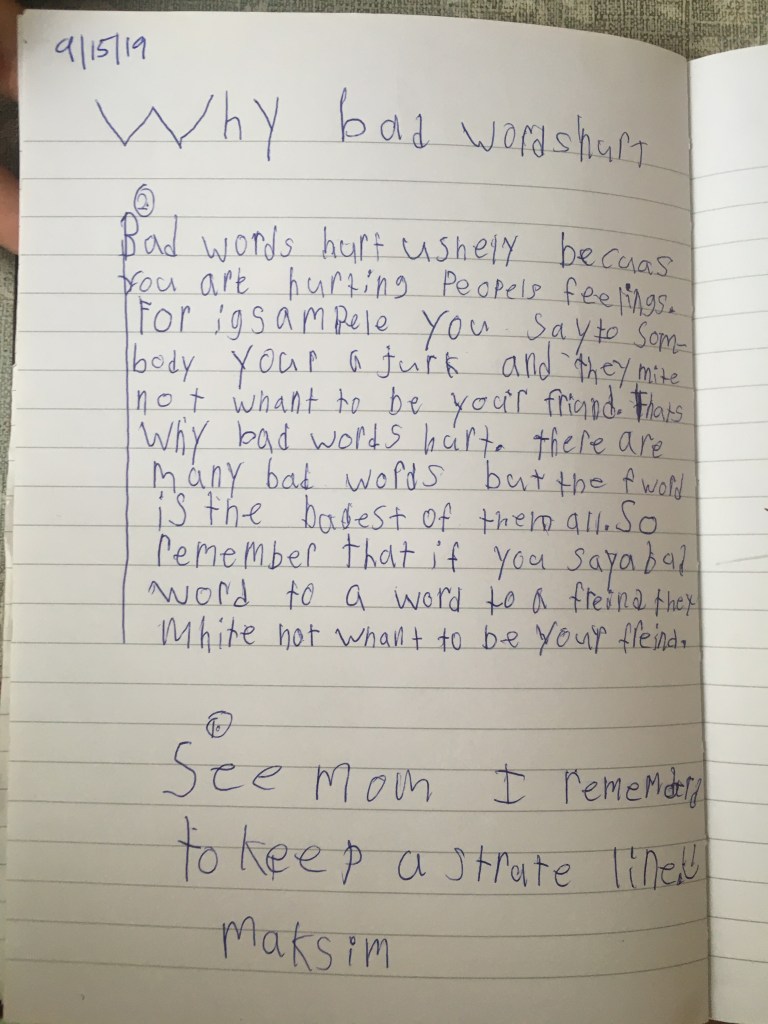 9/15/19
Why bad words hurt
2
Bad words hurt ushely becuas
you are hurting Peopels feelings.
For igsampele you say to som-
body your a jurk and they mite
not whant to be your friand. thats
Why bad words hurt. there are
many bad words but the f word
is the badest of them all. So
remember that if you say a bad
word to a word to a freind they
mhite not whant to be your freind.
1.
See mom I
to keep a strate line!!
Maksim